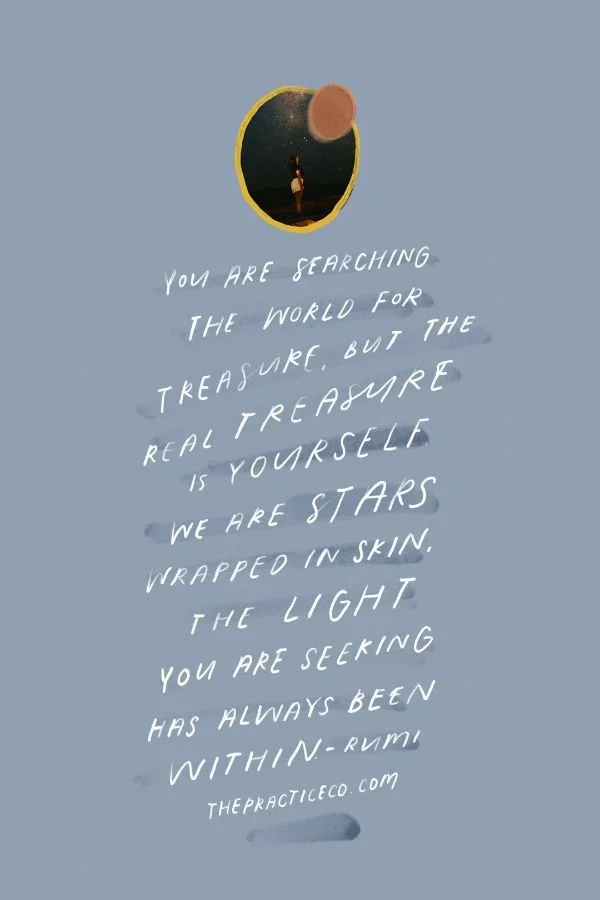 YOU ARE SEARCHING
THE WORLD FOR
TREASURE, BUT THE
REAL TREASURE
IS YOURSELF.
WE ARE STARS
WRAPPED IN SKIN.
THE LIGHT
YOU ARE SEEKING
HAS ALWAYS BEEN
WITHIN - RUMI
THEPRACTICECO.COM